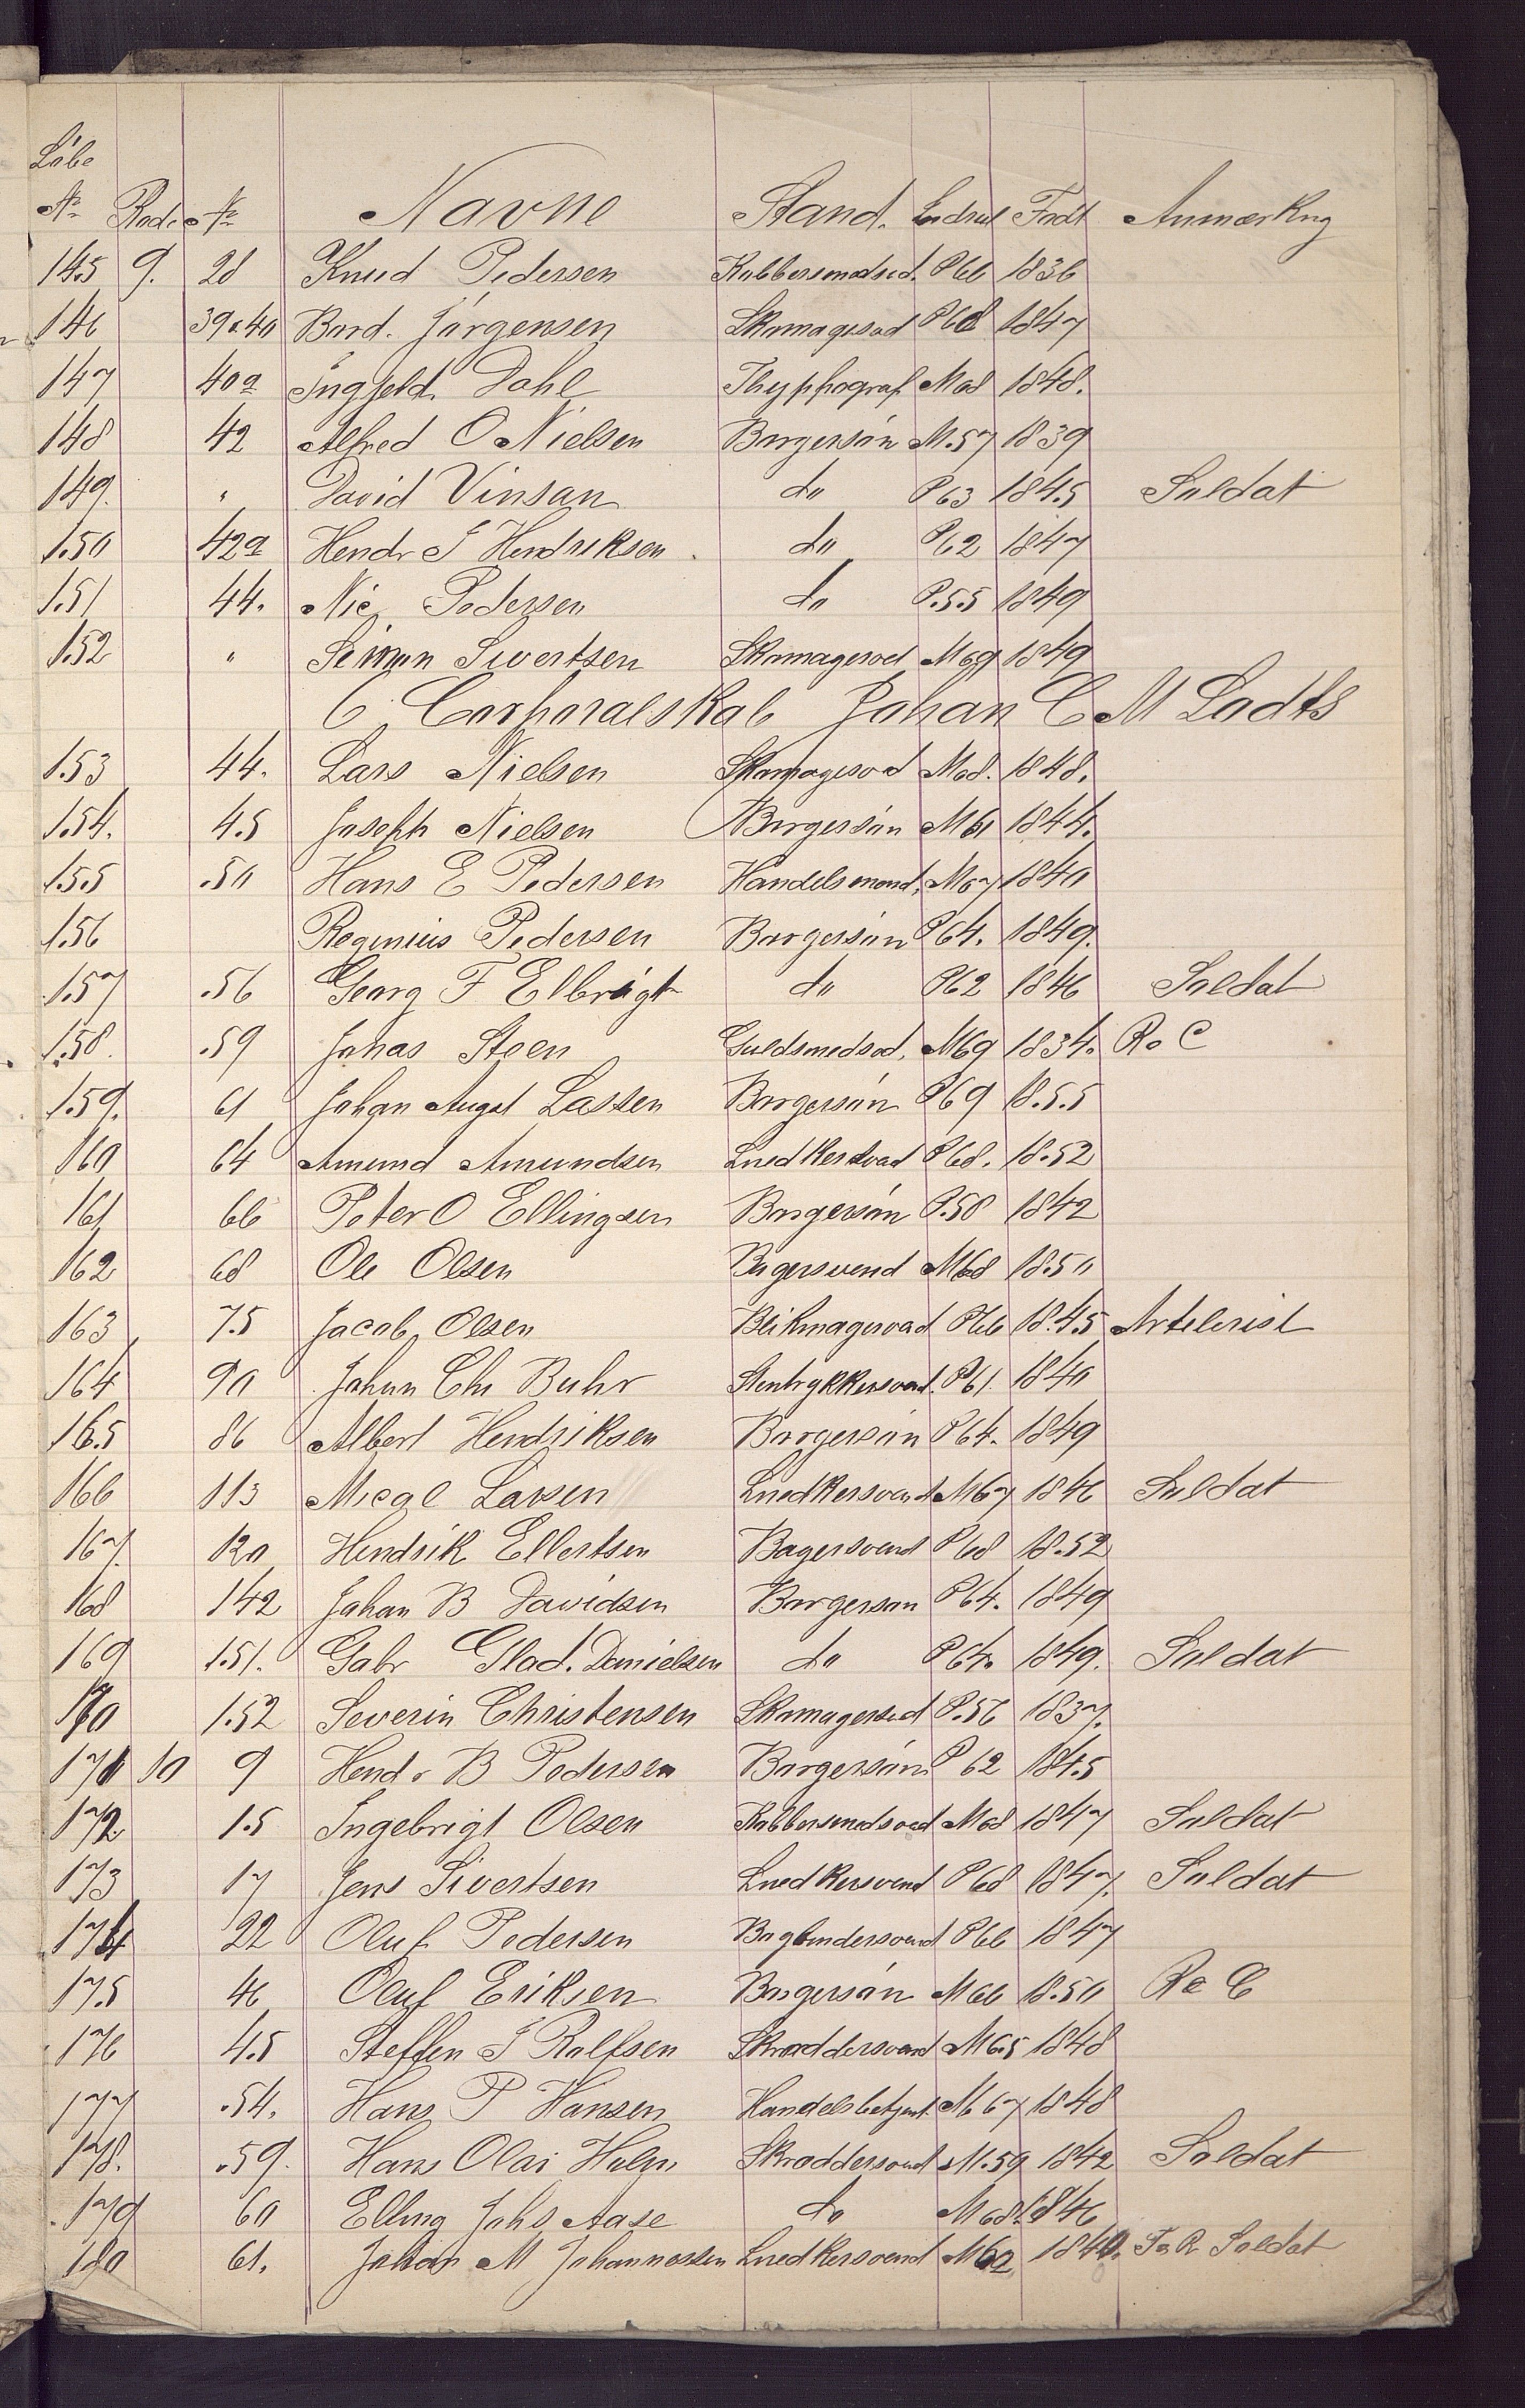 Löbe
No Rode No Navne Stand. Indrul Födt Anmærkng
145 9. 28 Knud Pedersen Kobbersmedsd. P66 1836
146 39&40 Bard. Jörgensen Skomagersvd P68 1847
147 40a Ingjeld. Dahl Thyphograf M68 1848.
148 42 Alfred O Nielsen Borgersön M.57 1839
149. " David Vinsan do P63 1845 Soldat
150 42a Hendr J Hendriksen. do P62 1847
151 44. Nic. Pedersen do P.55 1849
152 " Simon Sivertsen Skomagersvd M69 1849
6 Corporalskab Johan C M Ladts
153 44. Lars Nielsen Skomagersvd M68. 1848.
154. 45 Joseph Nielsen Borgersön M61 1844.
155 50 Hans E Pedersen Handelsmand. M67 1840
156 Reginius Pedersen Borgersön P64. 1849.
157 56 Georg F Elbrigt do P62 1846 Soldat
158. 59 Jonas Steen Guldsmedsvd. M69 1834. R o C
159. 61 Johan Augst Lassen Borgersön P69 1855
160 64 Amund Amundsen Snedkersvad P68. 1852
161 66 Peter O Ellingsen Borgersön P.58 1842
162 68 Ole Olsen Bagersvend M68 1850
163 75 Jacob Olsen Blikmagersvad P66 1845 Artelerist
164 90 Johan Chr Buhr Stentrykkersvend. P61. 1840
165 86 Albert Hendriksen Borgersön P64. 1849
166 113 Micael Larsen Snedkersvend M67 1846 Soldat
167. 120 Hendrik Ellertsen Bagersvend P68 1852
168 142 Johan B Davidsen Borgerson P64. 1849
169 151. Gabr Glad. Danielsen do P64. 1849. Soldat
170 152 Severin Christensen Skomagersvd P.56 1837.
171 10 9 Hendr B Pedersen Borgersön P 62 1845
172 15 Ingebrigt Olsen Kobbersmedsvend M68 1847 Soldat
173 17 Jens Sivertsen Snedkersvend P68 1847. Soldat
174 22 Oluf Pedersen Bogbindersvend P66 1847
175 46 Oluf Eriksen Borgersön M66 1850 R o C
176 45 Steffen J Rolfsen Skræddersvend M65 1848
177 54. Hans P Hansen Handelsbetjent. M67 1848
178. 59. Hans Olai Holm Skræddersvend M.59 1842 Soldat
179 60 Elling Johs Aase do M68. 1846
180 61. Johan M Johannessen Snedkersvend M62 1840. F o R Soldat